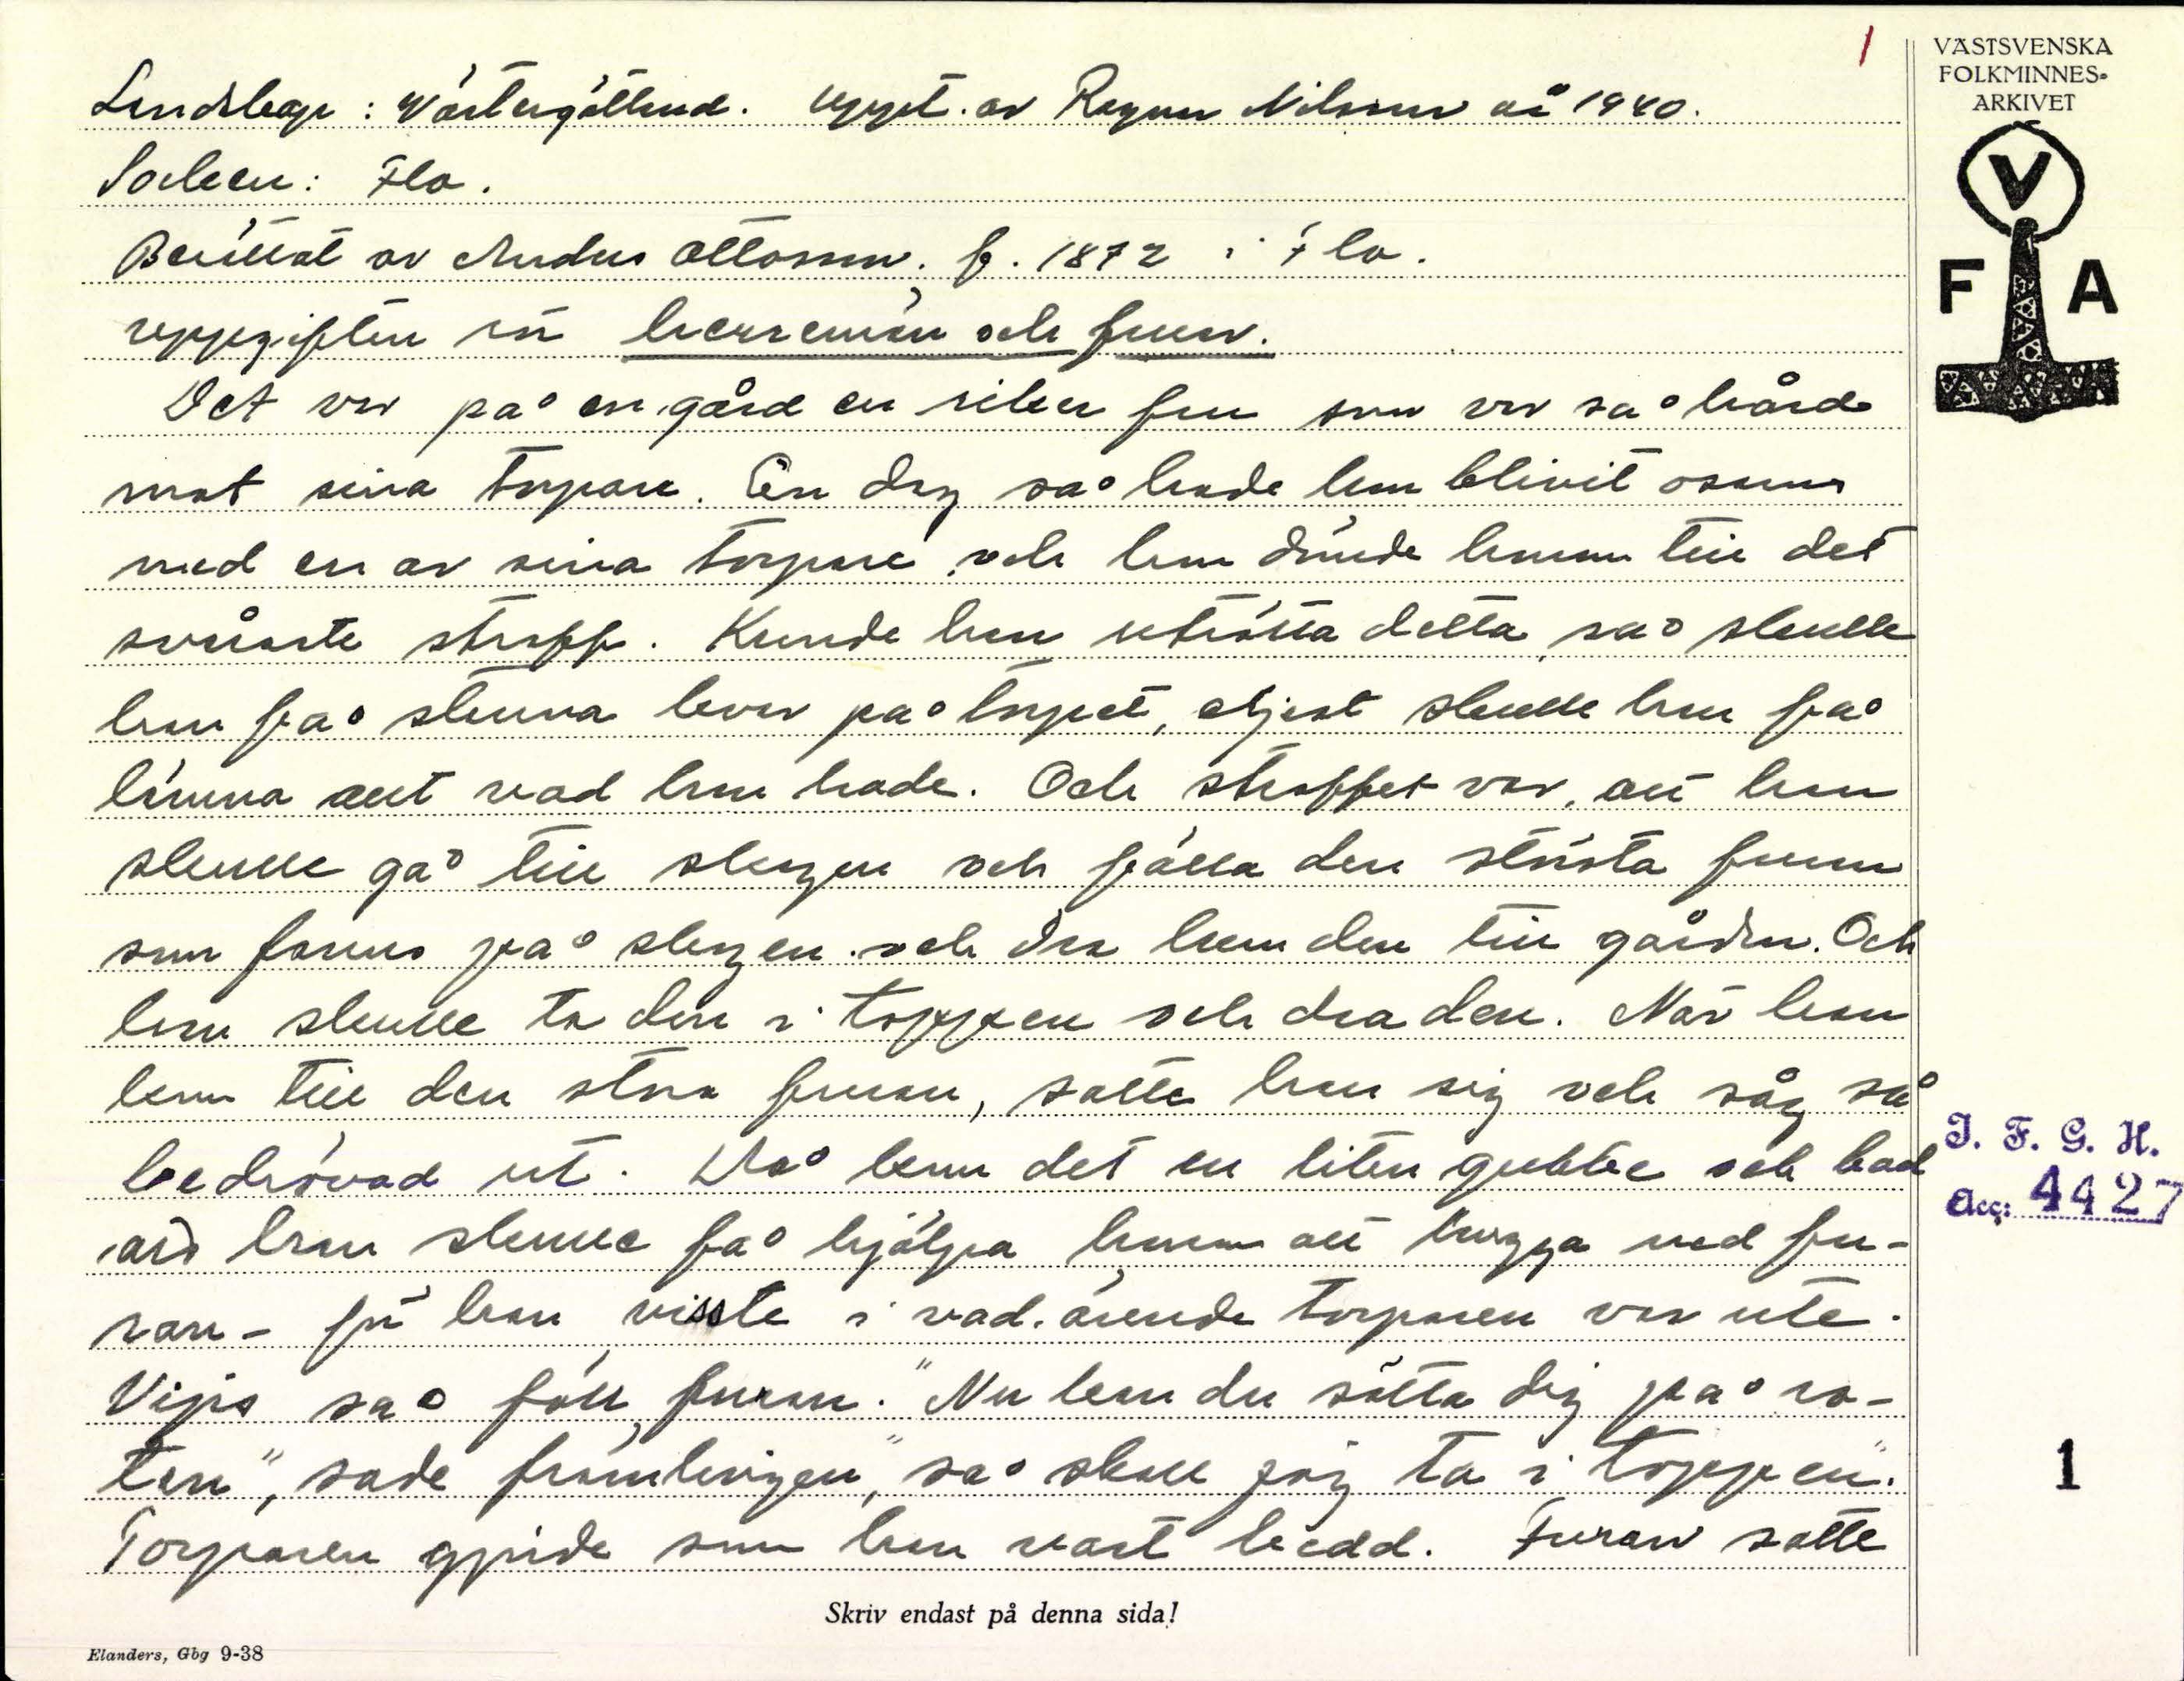 1
VÄSTSVENSKA
FOLKMINNES-
ARKIVET
V
F A
Landskap: Västergötland. Uppt. av Ragnar Nilsson år 1940.
Socken: Flo.
Berättat av Anders Ottosson. f. 1872 i Flo.
uppgiften rör herremän och fruar.
Det var på en gård en riker fru som var så hård
mot sina torpare. En dag så hade hon blivit osams
med en av sina torpare och hon dömde honom till det
svåraste straff. Kunde han uträtta detta, så skulle
han få stanna kvar på torpet, eljest skulle han få
lämna allt vad han hade. Och straffet var, att han
skulle gå till skogen och fälla den största furan
som fanns på skogen och dra hem den till gården. Och
han skulle ta den i toppen och dra den. När han
kom till den stora furan, satte han sig och såg så
bedrövad ut. Då kom det en liten gubbe och bad
att han skulle få hjälpa honom att hugga ned fu-
ran - för han visste i vad ärende torparen var ute.
Vips så föll furan. "Nu kan du sätta dig på ro-
ten", sade främlingen, "så skall jag ta i toppen".
Torparen gjorde som han vart bedd. Furan satte
J. F. G. H.
Acc: 4427
1
Skriv endast på denna sida!
Elanders, Gbg 9-38